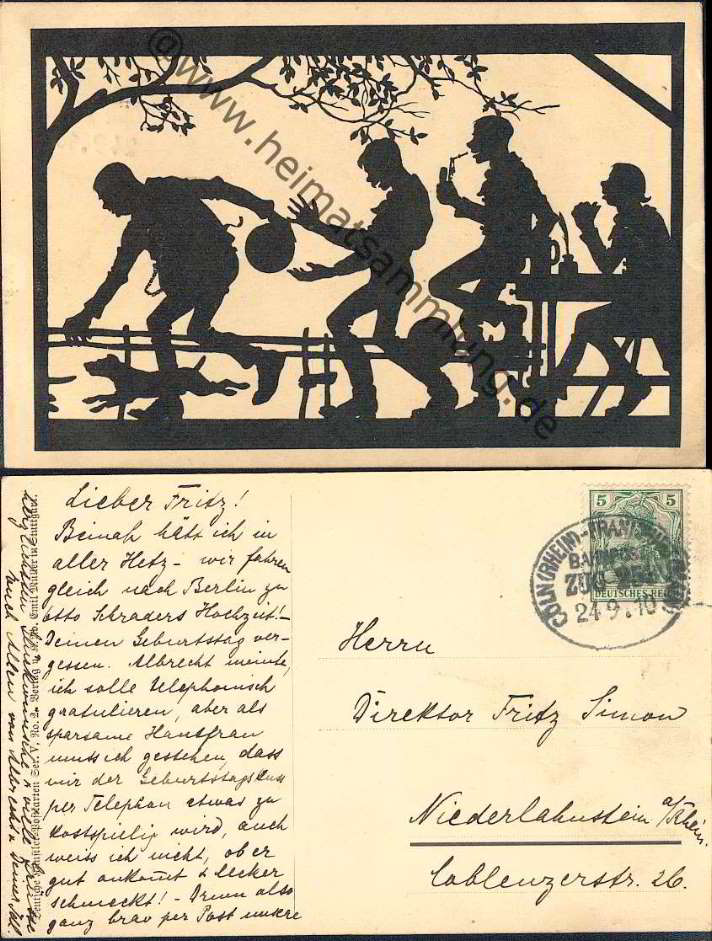 ©www.heimatsammlung.de
Lieber Fritz!
Beinah hätt ich in
aller Hetz - wir fahren
gleich nach Berlin zu
Otto Schraders Hochzeit! -
Deinen Geburtstag ver-
gessen. Albrecht meinte,
ich solle telephonisch
gratulieren, aber als
sparsame Hausfrau
muss ich gestehen, dass
mir der Geburtstagskuss
per Telephon etwas zu
kostspielig wird, auch
weiss ich nicht, ob er
gut ankomt & lecker
schmeckt! - Drum also
ganz brav per Post unsre
herzlichsten Glückwünsche & viele Grüsse
auch Allen von Albrecht & Deiner
Deutsche Künstler-Postkarten Ser. V, No. 2. Verlag Emil Müller in Stuttgart.
5
DEUTSCHES REICH
CÖLN (RHEIN)-FRANKFURT
BAHNPOST
ZUG
24 9. 10
Herrn
Direktor Fritz Simon
Niederlahnstein a/Rhein.
Coblenzerstr. 26.